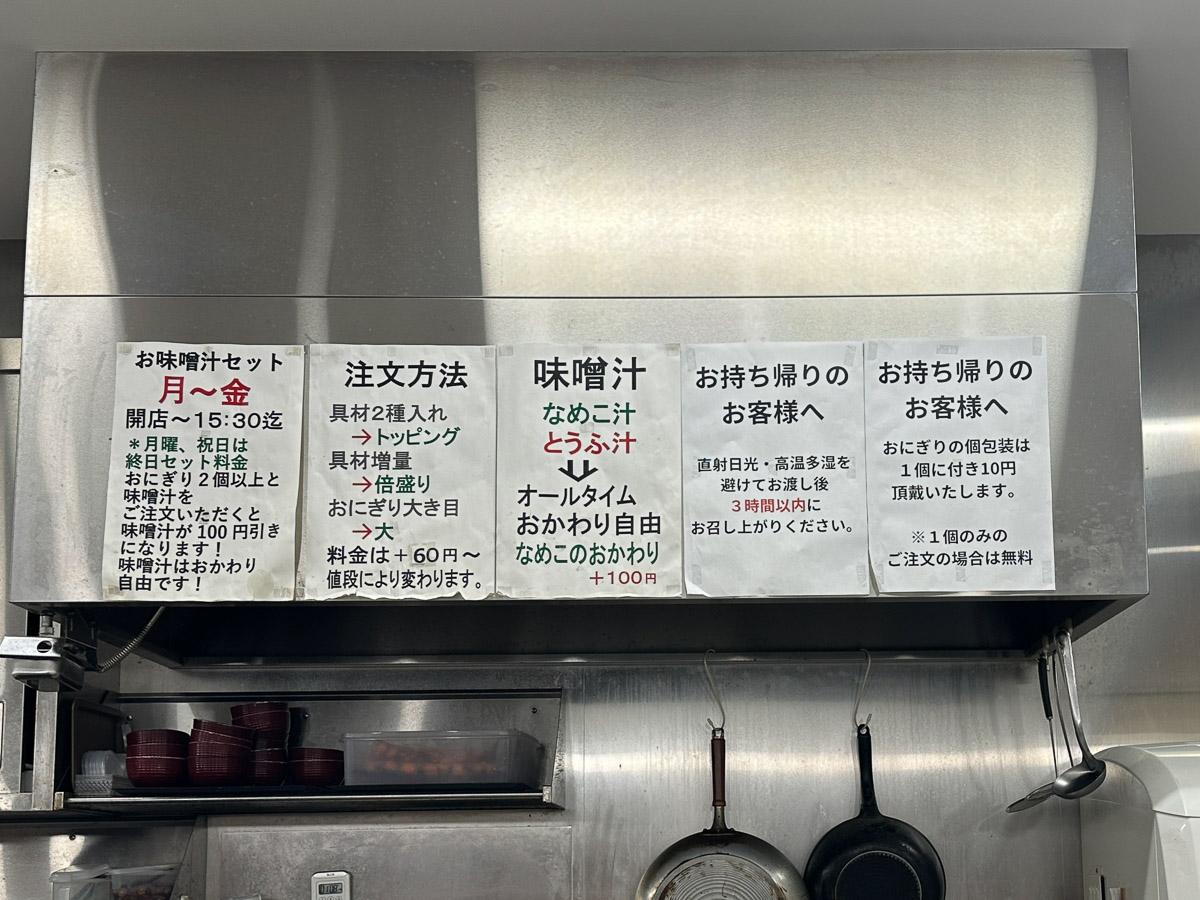 お味噌汁セット
月～金
開店～15:30迄
＊月曜、祝日は
終日セット料金
おにぎり２個以上と
味噌汁を
ご注文いただくと
味噌汁が100円引き
になります！
味噌汁はおかわり
自由です！
注文方法
具材２種入れ
→トッピング
具材増量
→倍盛り
おにぎり大き目
→大
料金は＋60円～
値段により変わります。
味噌汁
なめこ汁
とうふ汁
オールタイム
おかわり自由
なめこのおかわり
＋100円
お持ち帰りの
お客様へ
直射日光・高温多湿を
避けてお渡し後
３時間以内に
お召し上がりください。
お持ち帰りの
お客様へ
おにぎりの個包装は
１個に付き10円
頂戴いたします。
※１個のみの
ご注文の場合は無料